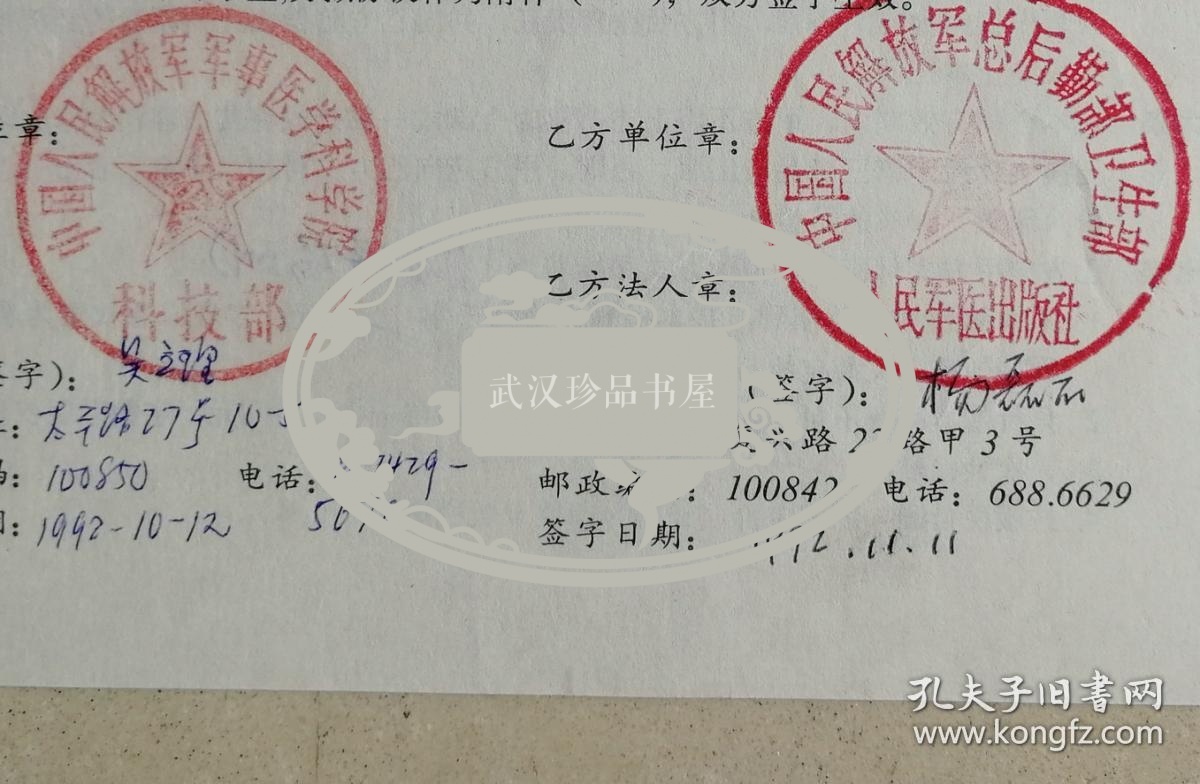 双方签字生效。
中国人民解放军军事医学科学院
科技部
章:
签字): 吴主理
太平路27号10-
100850 电话: 2429-
1992-10-12 50
中国人民解放军总后勤部卫生部
人民军医出版社
乙方单位章:
乙方法人章:
(签字): 杨磊石
兴路22路甲3号
邮政 : 100842 电话: 688.6629
签字日期: 1992.11.11
武汉珍品书屋
孔夫子旧书网
www.kongfz.com